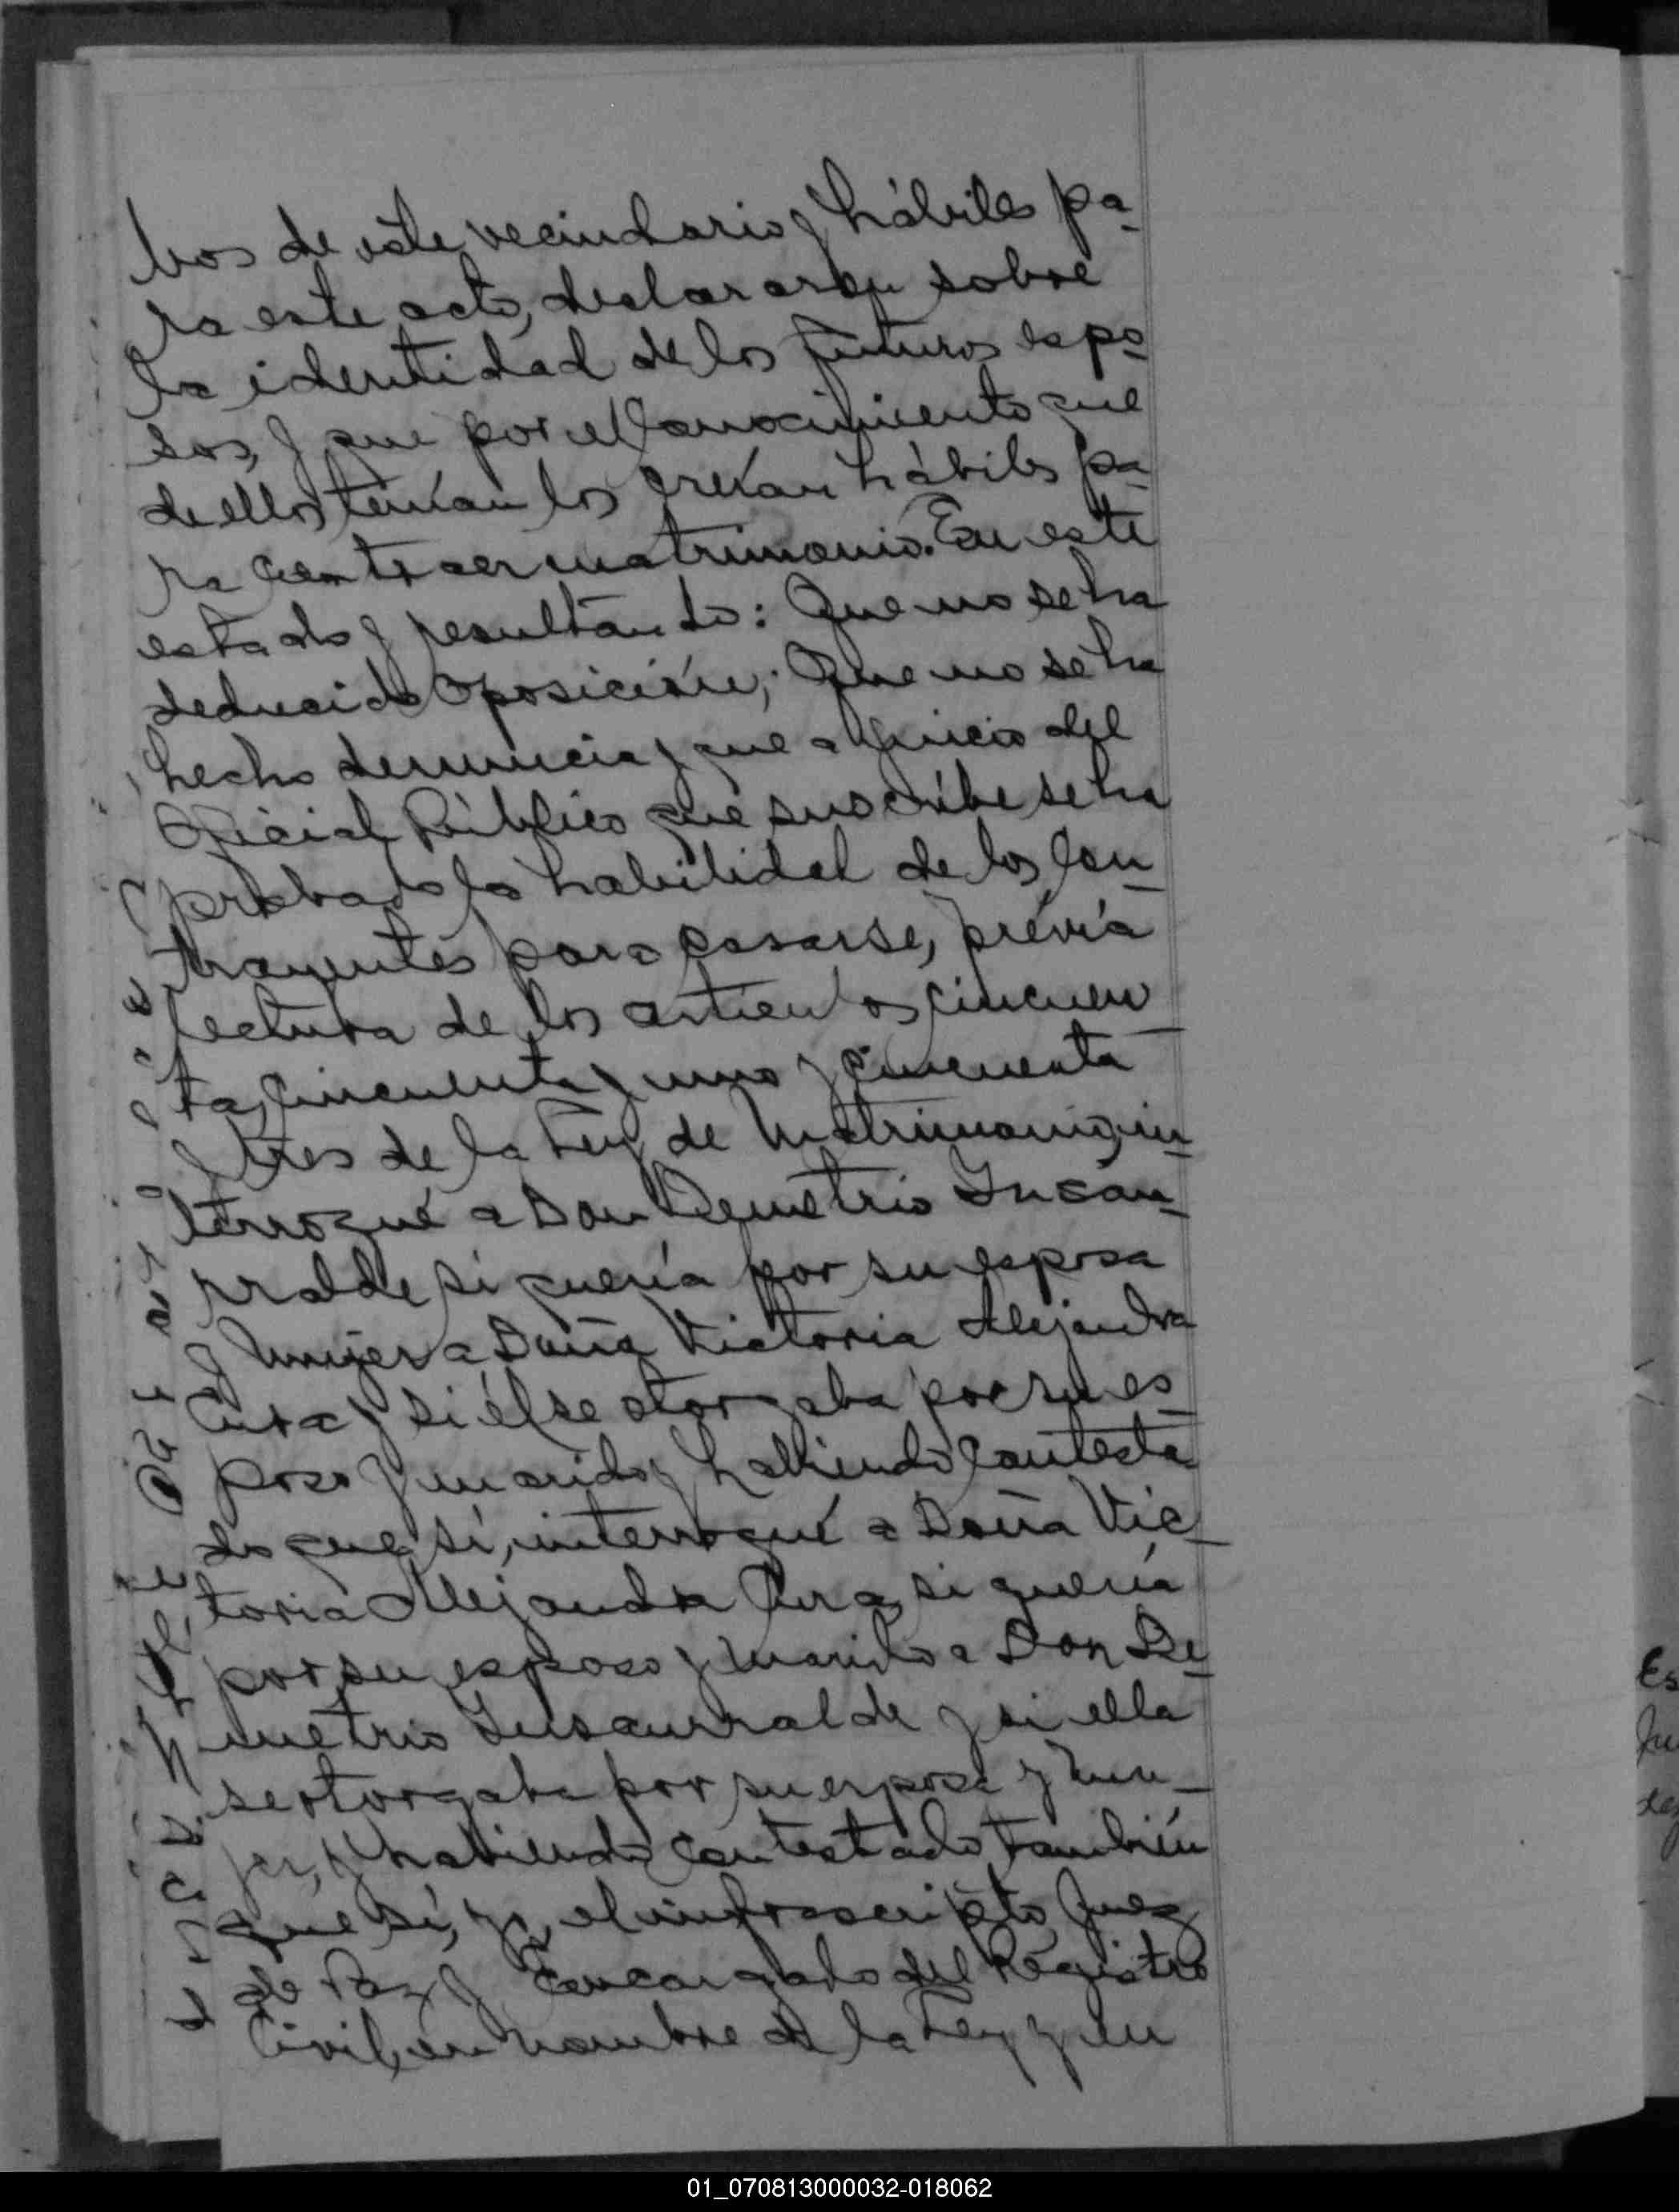 bos de este vecindario y hábiles pa-
ra este acto, declararon sobre
la identidad de los futuros espo-
sos, y que por el conocimiento que
de ellos tenían los creían hábiles pa-
ra contraer matrimonio. En este
estado y resultando: Que no se ha
deducido oposición; Que no se ha
hecho denuncia y que a juicio del
Oficial Público que suscribe se ha
probado la habilidad de los con-
trayentes para casarse, prévia
lectura de los artículos cincuen-
ta, cincuenta y uno y cincuenta
y tres de la Ley de Matrimonio, in-
terrogué a Don Demetrio Insau-
rralde si quería por su esposa
y mujer a Doña Victoria Alejandra
y si él se otorgaba por su es-
poso y marido y habiendo contesta-
do que sí, interrogué a Doña Vic-
toria Alejandra si quería
por su esposo y marido a Don De-
metrio Insaurralde y si ella
se otorgaba por su esposa y mu-
jer, y habiendo contestado también
que sí, yo, el infrascripto Juez
de Paz y Encargado del Registro
Civil, en nombre de la Ley y en
01_070813000032-018062